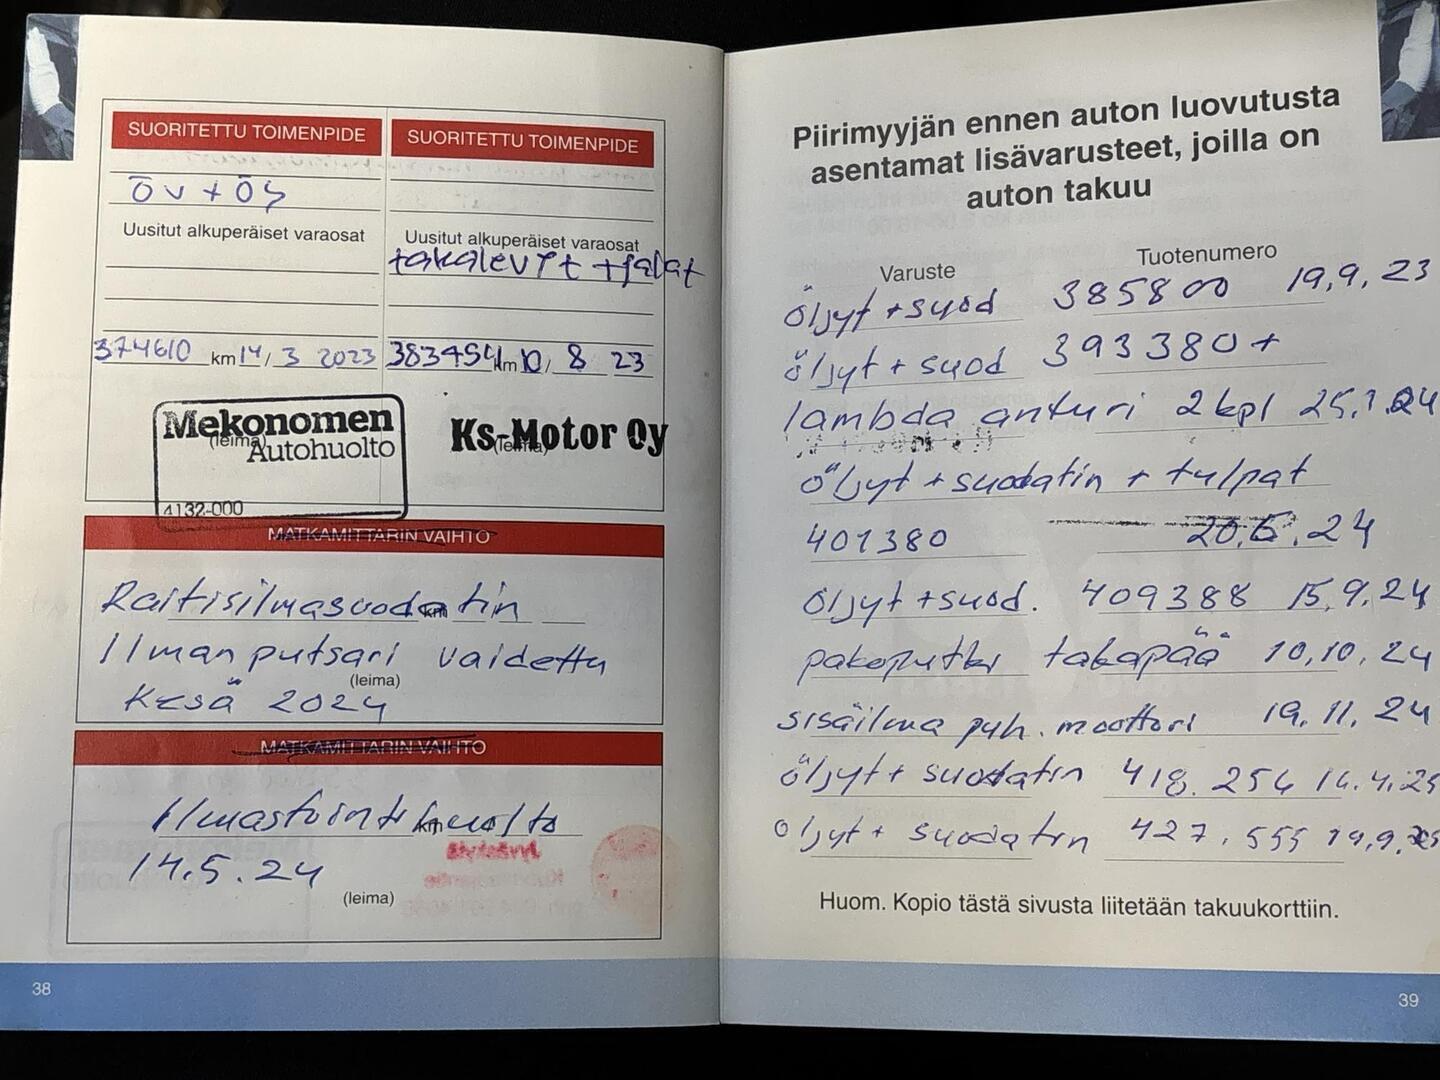 SUORITETTU TOIMENPIDE
ÖV + ÖS
Uusitut alkuperäiset varaosat
374610 km 14/3 2023
Mekonomen
(leima)
Autohuolto
4132-000
SUORITETTU TOIMENPIDE
Uusitut alkuperäiset varaosat
takalevyt + palat
km 10/8 23
Ks-Motor Oy
(leima)
MATKAMITTARIN VAIHTO
Raitisilmasuodatin
km
Ilman putsari vaidettu
(leima)
Kesä 2024
MATKAMITTARIN VAIHTO
Ilmastointi huolto
km
14.5.24
(leima)
38
Piirimyyjän ennen auton luovutusta
asentamat lisävarusteet, joilla on
auton takuu
Varuste Tuotenumero
öljyt + suod 385800 19,9,23
öljyt + suod 393380 +
lambda anturi 2 kpl 25.1.24
öljyt + suodatin + tulpat
401380 24
öljyt + suod. 409388 15,9,24
pakoputki takapää 10,10,24
sisäilma puh. moottori 19,11,24
öljyt + suodatin 418.254 14.4.25
öljyt + suodatin 427.555 19,9,25
Huom. Kopio tästä sivusta liitetään takuukorttiin.
39